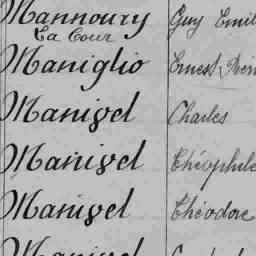 Mannoury Guy Emil
La Cour
Maniglio Ernest
Manigel Charles
Manigel Théophile
Manigel Théodore